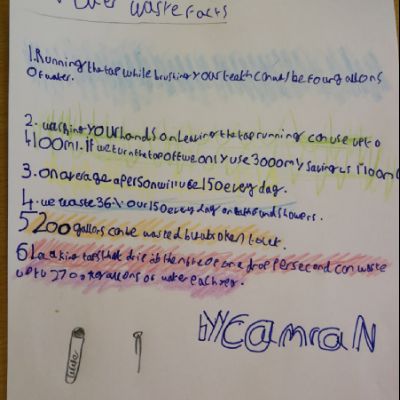 Water waste facts
1. Running the tap while brushing your teeth can use four gallons
of water.
2. washing your hands on leaving the tap running can use up to
4100ml. If we turn the tap off we only use 3000ml saving us 1100m
3. on average a person will use 150 every day.
4. we waste 36% our 150 every day on baths and showers.
5 200 gallons can be wasted by a broken toilet.
6 Leaking taps that drip at the rate of a drop per second can waste
up to 2700 gallons of water each year.
by Camran